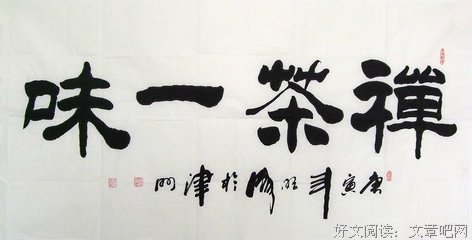 禪茶一味
庚寅年於津門
好文阅读：文章吧网